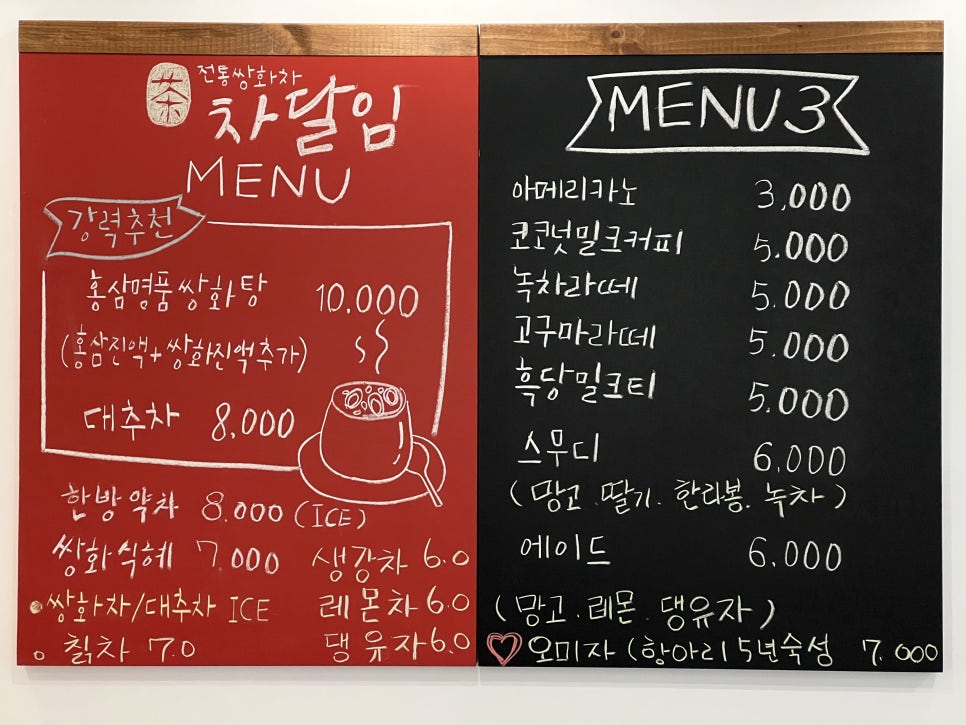 茶
전통쌍화차
차달임
MENU
강력추천
홍삼명품쌍화탕 10.000
(홍삼진액+쌍화진액추가)
대추차 8,000
한방약차 8.000 (ICE)
쌍화식혜 7,000
생강차 6.0
쌍화차/대추차 ICE
레몬차 6.0
칡차 7.0
댕유자 6.0
MENU 3
아메리카노 3,000
코코넛밀크커피 5.000
녹차라떼 5.000
고구마라떼 5.000
흑당밀크티 5.000
스무디 6.000
(망고.딸기.한라봉.녹차)
에이드 6.000
(망고.레몬.댕유자)
오미자 (항아리 5년숙성 7.000